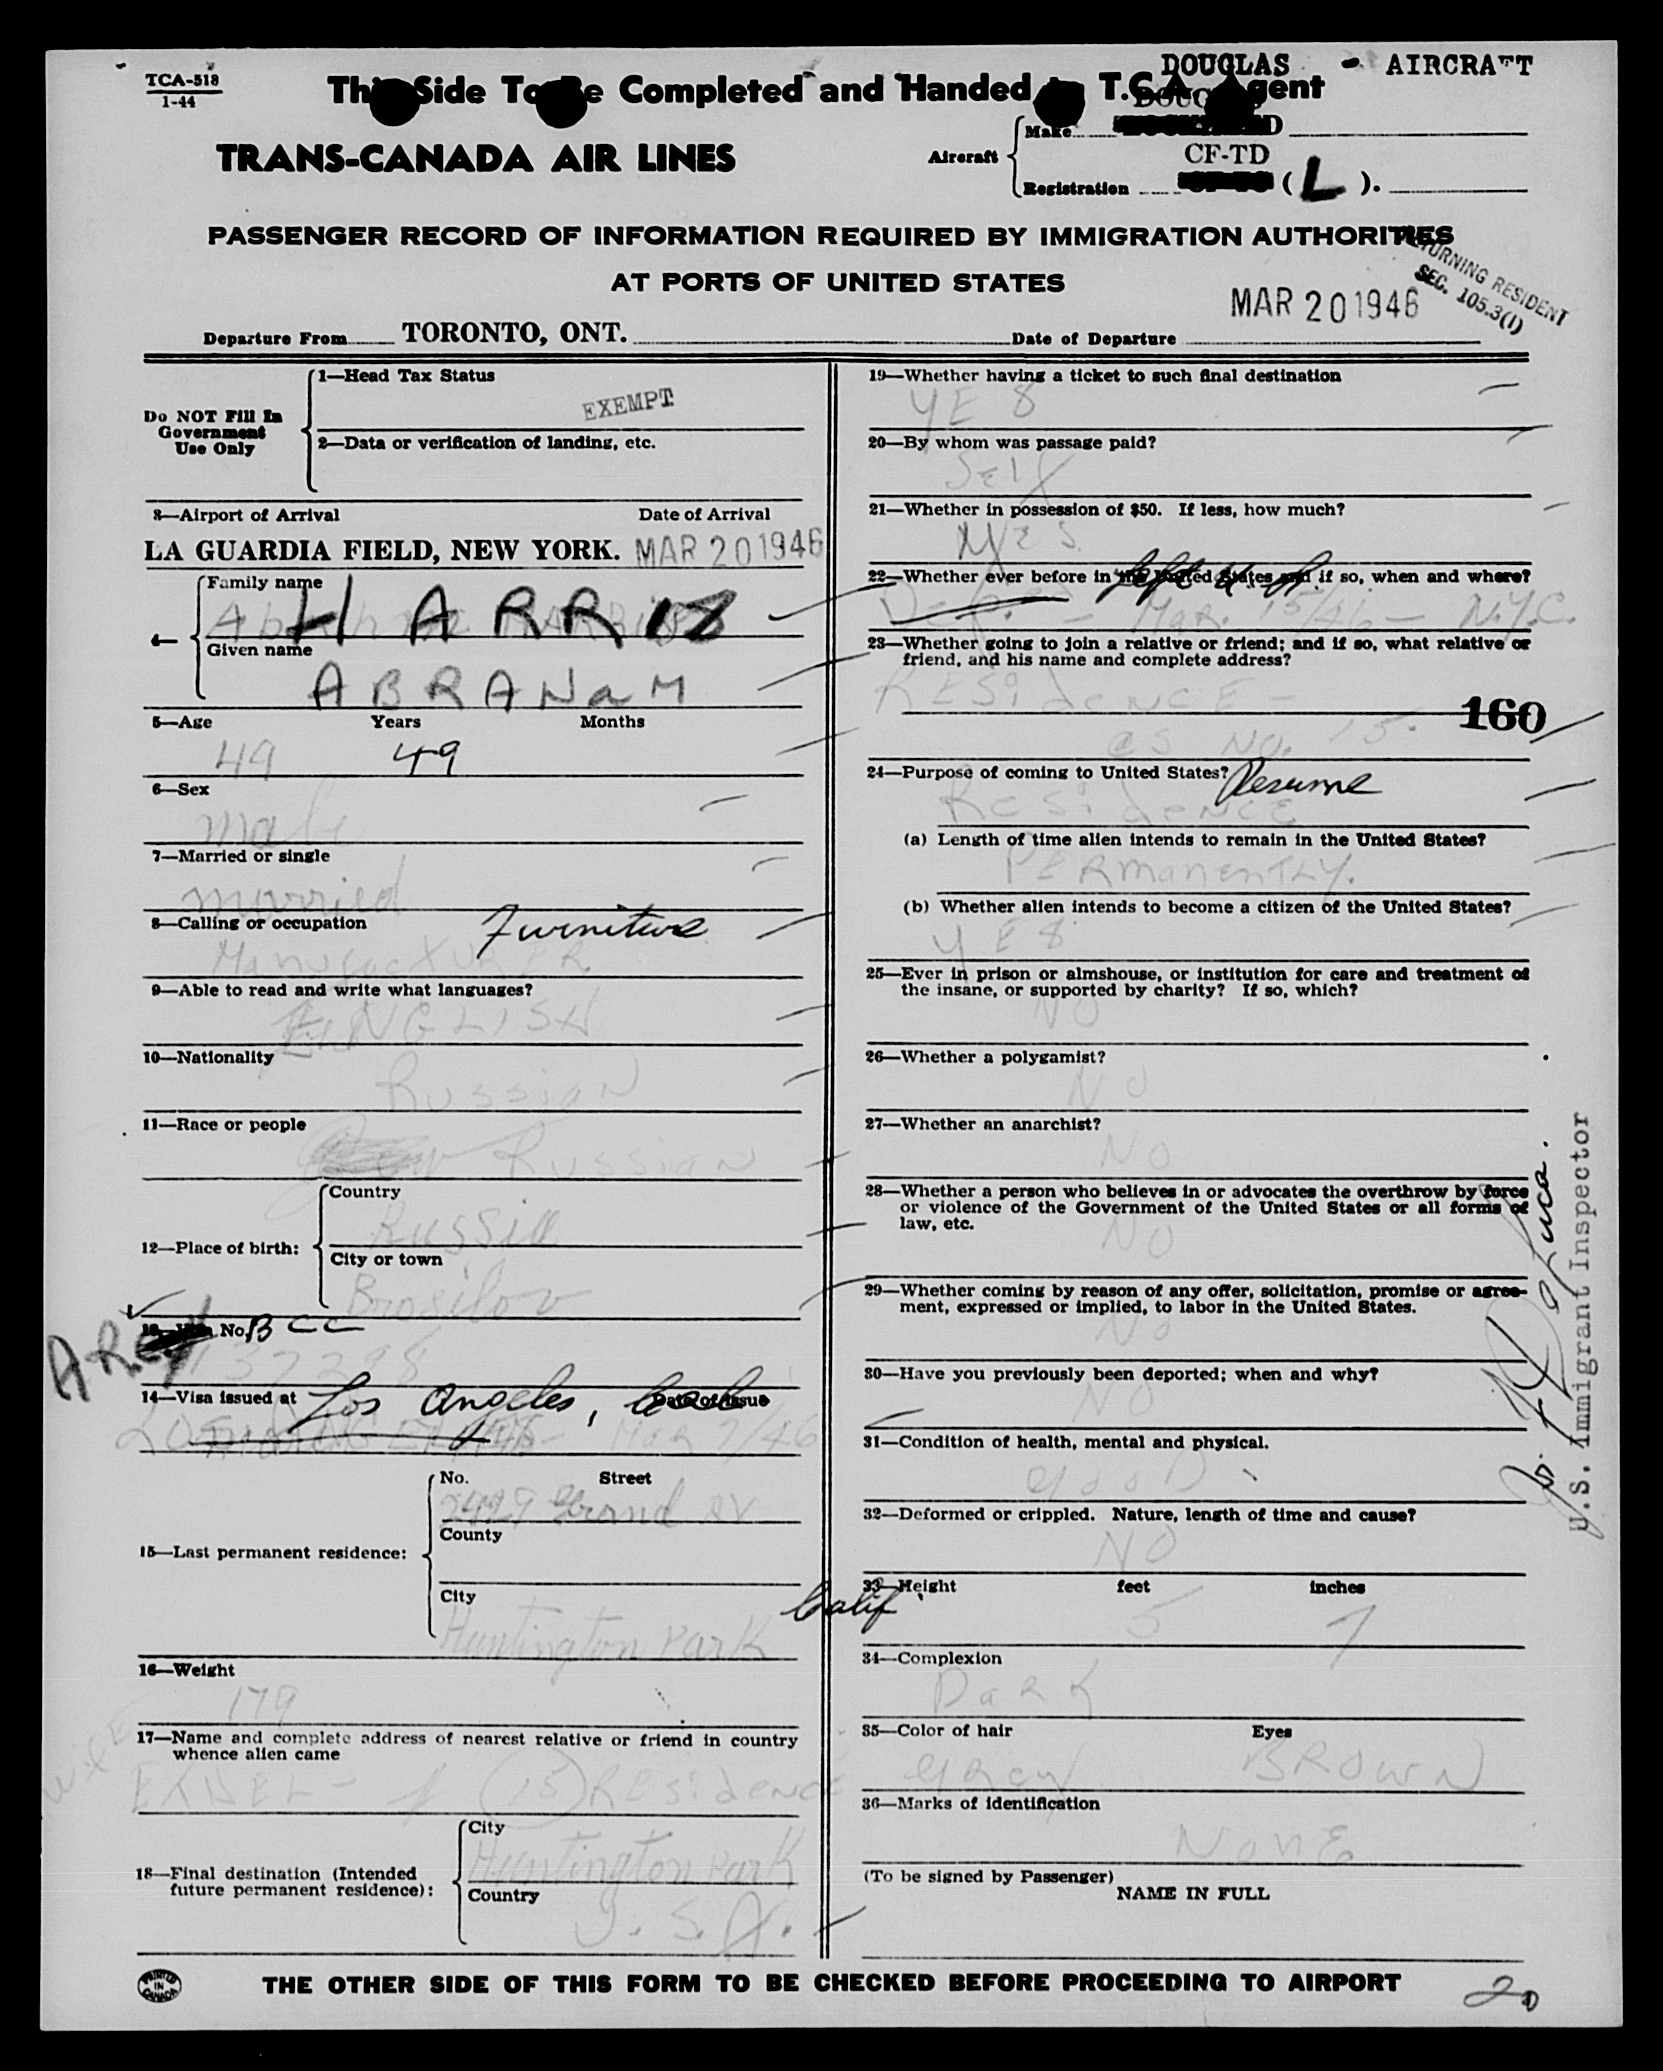 TCA-518
1-44
DOUGLAS - AIRCRAFT
This Side To Be Completed and Handed to T.C.A. Agent
TRANS-CANADA AIR LINES
Aircraft
Make
CF-TD
Registration (L).
PASSENGER RECORD OF INFORMATION REQUIRED BY IMMIGRATION AUTHORITIES
AT PORTS OF UNITED STATES
RETURNING RESIDENT
SEC. 105.3(1)
MAR 20 1946
Departure From TORONTO, ONT. Date of Departure
Do NOT Fill In
Government
Use Only
1—Head Tax Status
EXEMPT
2—Data or verification of landing, etc.
3—Airport of Arrival Date of Arrival
LA GUARDIA FIELD, NEW YORK. MAR 20 1946
4—
Family name
HARRIS
Given name
ABRAHaM
5—Age Years Months
49 49
6—Sex
male
7—Married or single
married
8—Calling or occupation Furniture
ManufacturER
9—Able to read and write what languages?
ENGLISH
10—Nationality
Russian
11—Race or people
Russian
12—Place of birth:
Country
Russia
City or town
Brosilov
No. BCC
14—Visa issued at Los Angeles, Date of Issue
Mar 7/46
15—Last permanent residence:
No. Street
2429 Grand AV
County
City
Huntington Park Calif.
16—Weight
179
17—Name and complete address of nearest relative or friend in country
whence alien came
wife
(15) RESidence
18—Final destination (Intended
future permanent residence):
City
Huntington Park
Country
U.S.A.
19—Whether having a ticket to such final destination
YES
20—By whom was passage paid?
Self
21—Whether in possession of $50. If less, how much?
YES
22—Whether ever before in the United States and if so, when and where?
left U.S.
Mar. 15/46 — N.Y.C.
23—Whether going to join a relative or friend; and if so, what relative or
friend, and his name and complete address?
RESidencE —
as No. 15.
160
24—Purpose of coming to United States? Resume
RESidencE
(a) Length of time alien intends to remain in the United States?
PERmanenTLY.
(b) Whether alien intends to become a citizen of the United States?
YES
25—Ever in prison or almshouse, or institution for care and treatment of
the insane, or supported by charity? If so, which?
NO
26—Whether a polygamist?
NO
27—Whether an anarchist?
NO
28—Whether a person who believes in or advocates the overthrow by force
or violence of the Government of the United States or all forms of
law, etc.
NO
29—Whether coming by reason of any offer, solicitation, promise or agree-
ment, expressed or implied, to labor in the United States.
No
30—Have you previously been deported; when and why?
NO
31—Condition of health, mental and physical.
gooD
32—Deformed or crippled. Nature, length of time and cause?
NO
33—Height feet inches
5 7
34—Complexion
DaRK
35—Color of hair Eyes
gRey BROWN
36—Marks of identification
NonE
(To be signed by Passenger)
NAME IN FULL
U.S. Immigrant Inspector
PRINTED IN CANADA
THE OTHER SIDE OF THIS FORM TO BE CHECKED BEFORE PROCEEDING TO AIRPORT
20